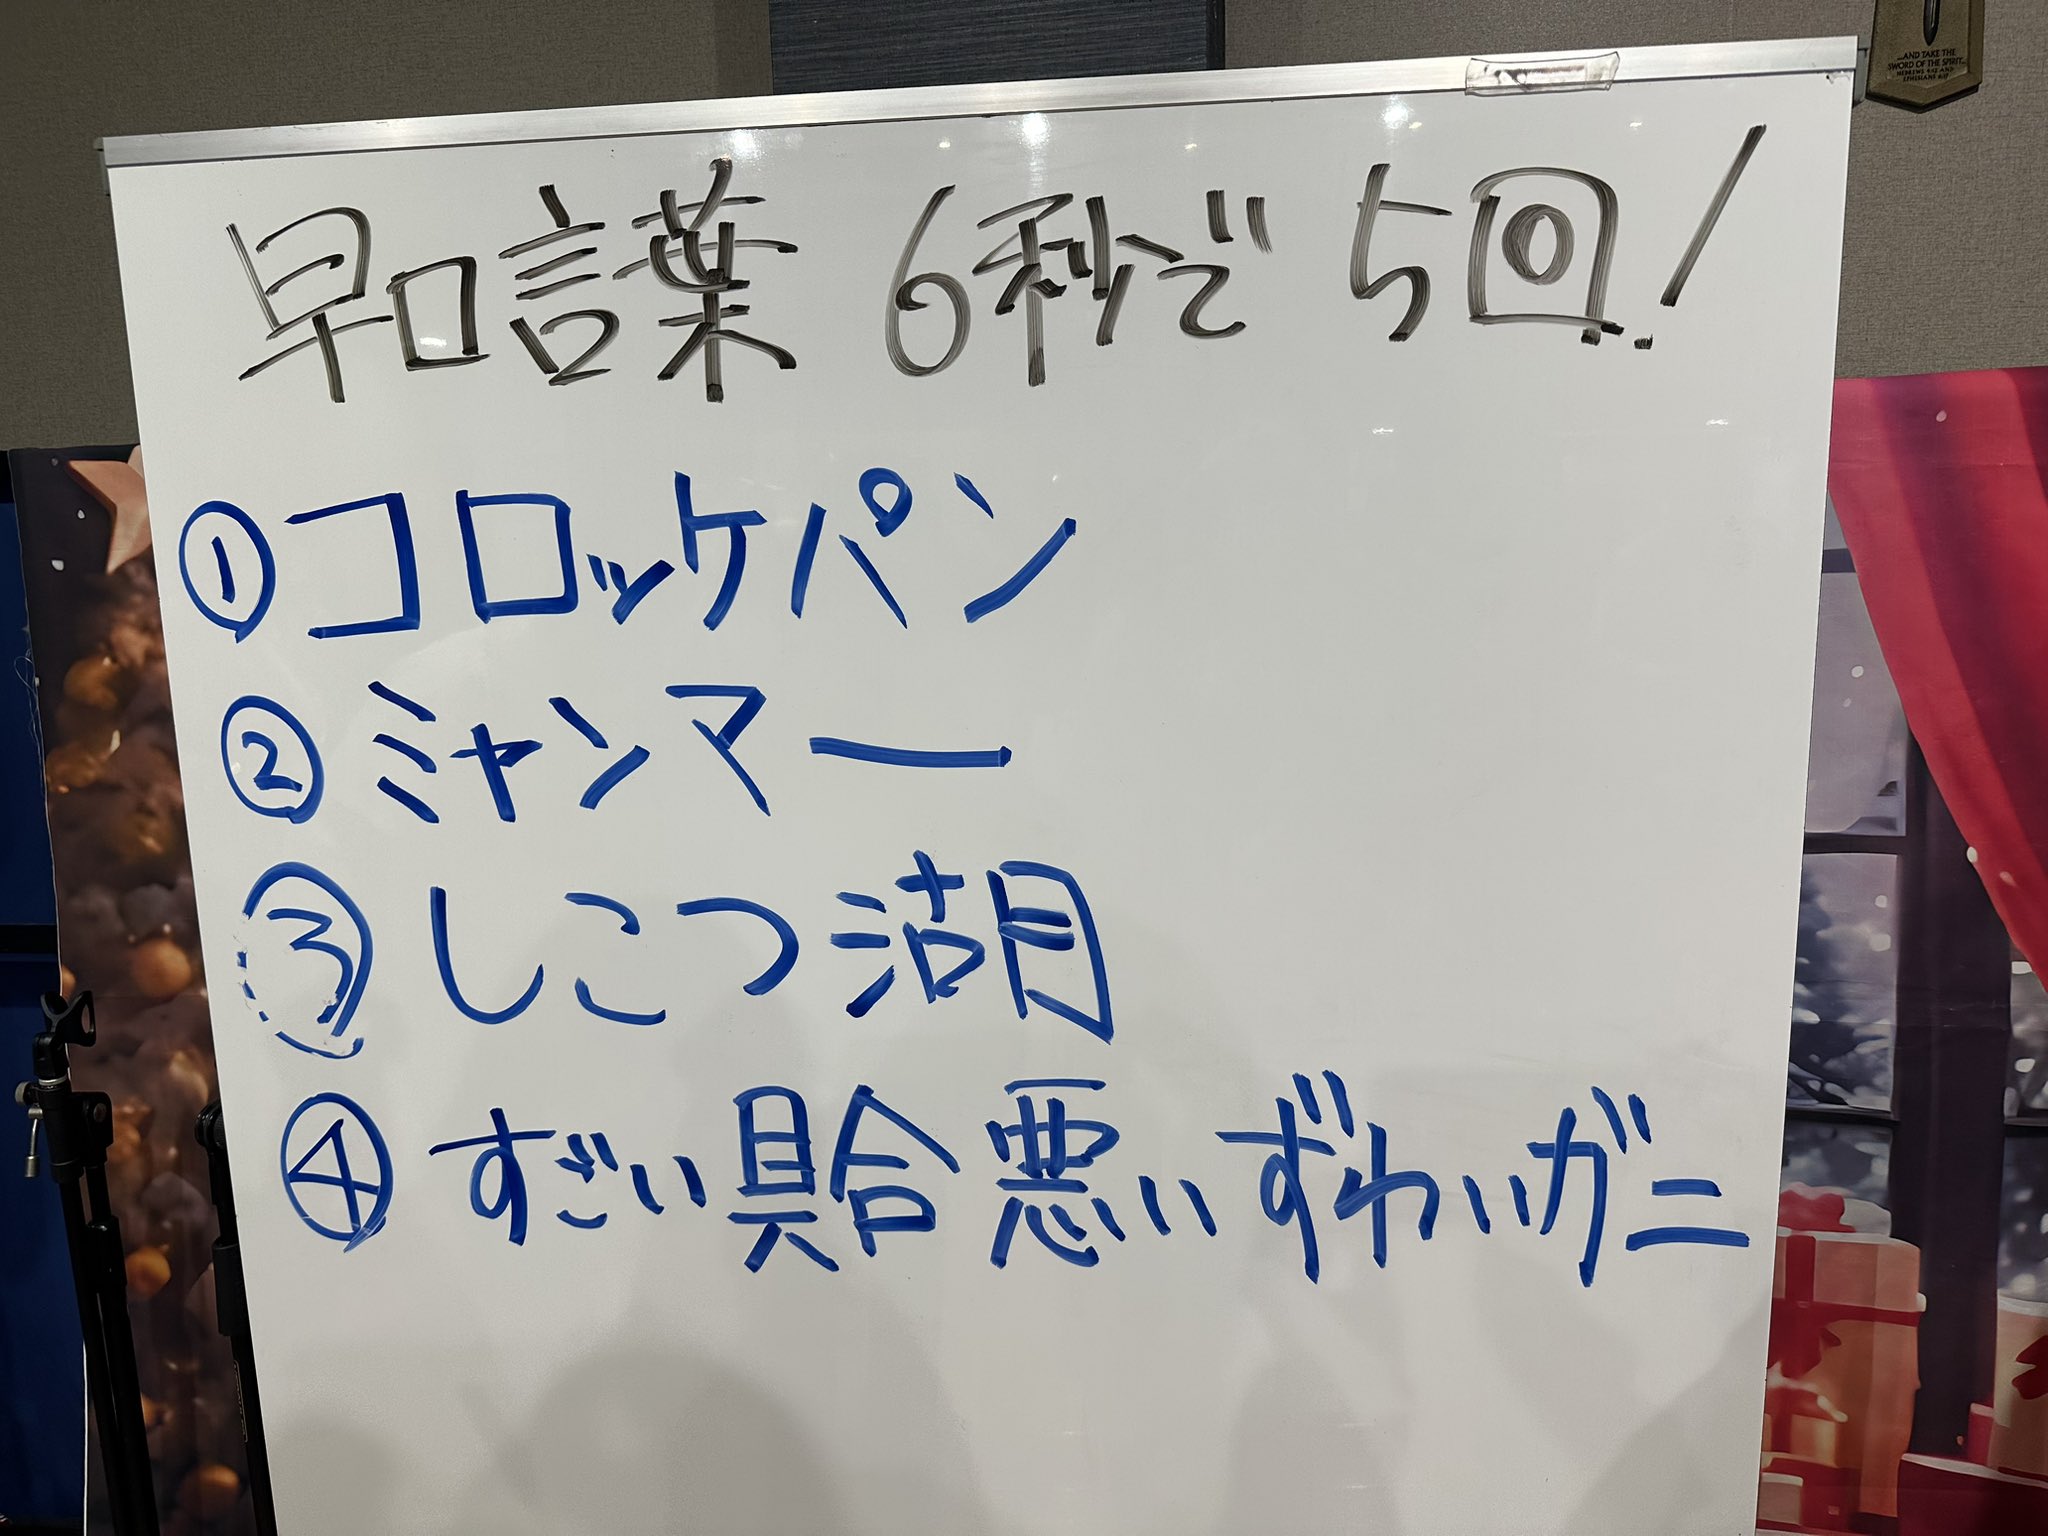 ...AND TAKE THE
SWORD OF THE SPIRIT...
HEBREWS 4:12 AND
EPHESIANS 6:17
早口言葉 6秒で5回!
①コロッケパン
②ミャンマー
③しこつ湖
④すごい具合悪いずわいガニ